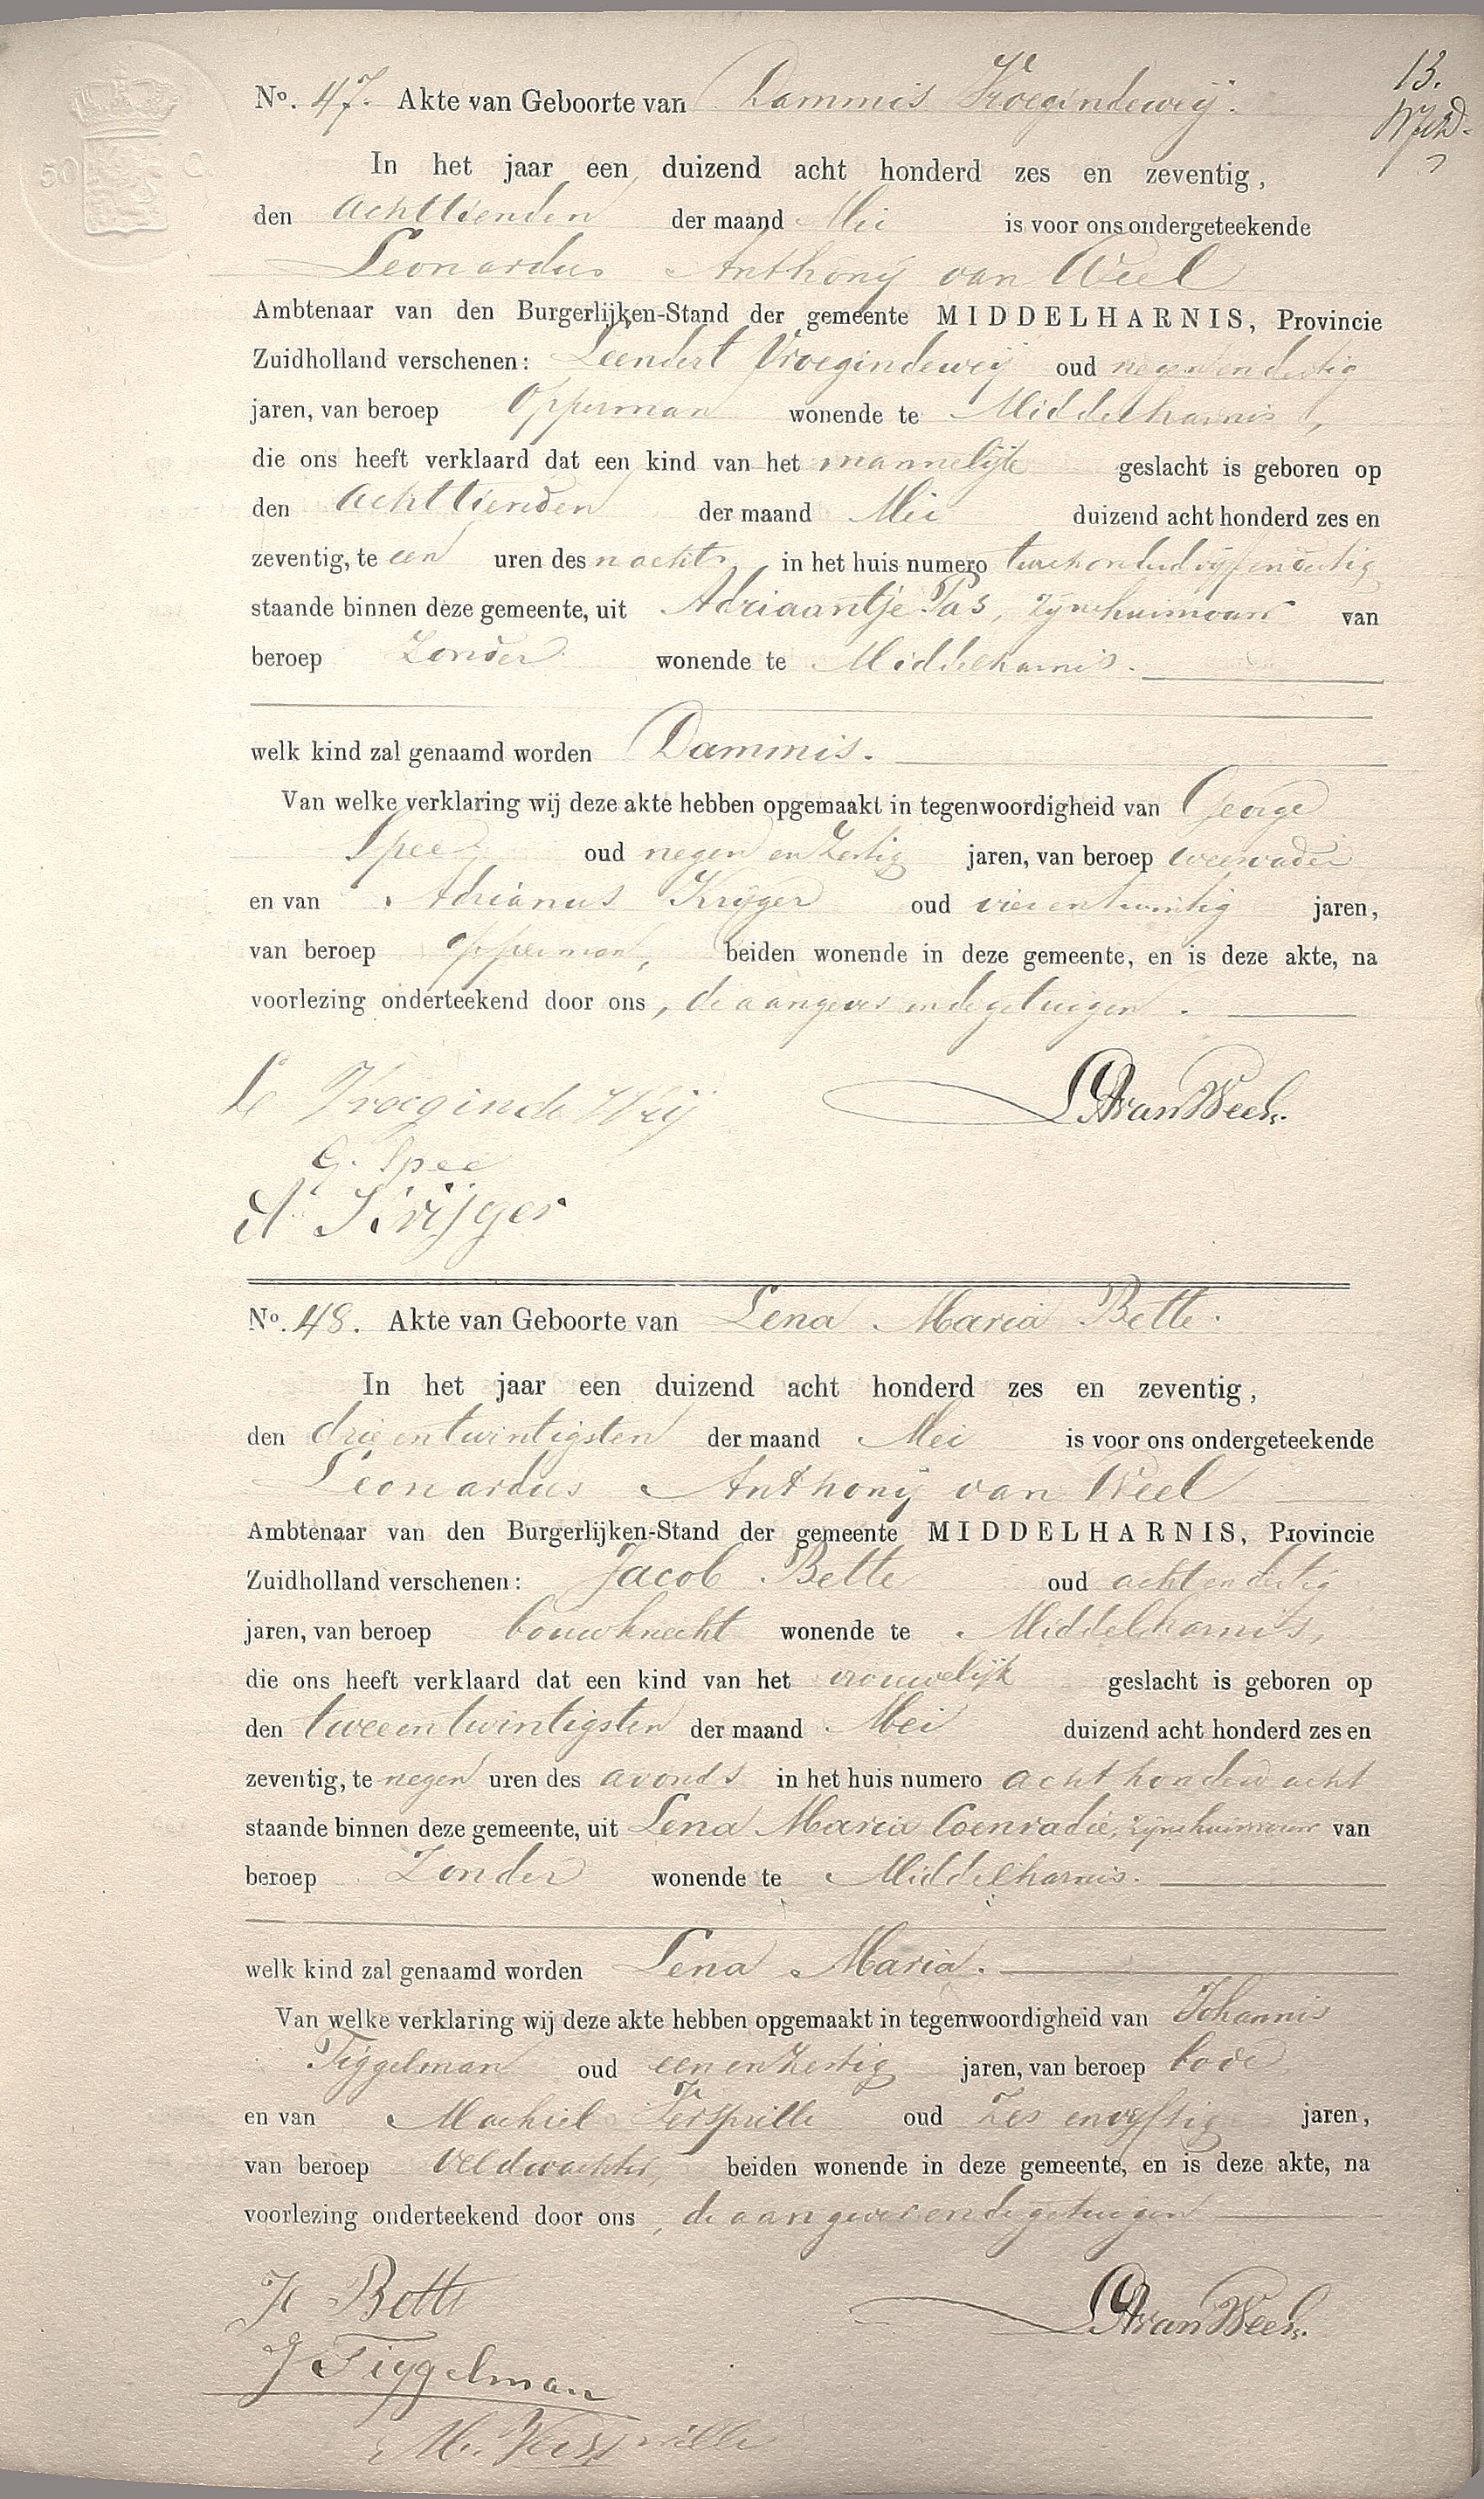 50 C.
13.
No. 47. Akte van Geboorte van Dammis Vroegindeweij.
In het jaar een duizend acht honderd zes en zeventig,
den achttienden der maand Mei is voor ons ondergeteekende
Leonardus Anthonij van Weel
Ambtenaar van den Burgerlijken-Stand der gemeente MIDDELHARNIS, Provincie
Zuidholland verschenen: Leendert Vroegindeweij oud negenendertig
jaren, van beroep Opperman wonende te Middelharnis,
die ons heeft verklaard dat een kind van het mannelijk geslacht is geboren op
den achttienden der maand Mei duizend acht honderd zes en
zeventig, te een uren des nachts in het huis numero tweehonderd vijfendertig
staande binnen deze gemeente, uit Adriaantje Pas, zijne huisvrouw van
beroep Zonder wonende te Middelharnis.
welk kind zal genaamd worden Dammis.
Van welke verklaring wij deze akte hebben opgemaakt in tegenwoordigheid van George
Spee oud negen en zestig jaren, van beroep
en van Adrianus Krijger oud vierentwintig jaren,
van beroep opperman, beiden wonende in deze gemeente, en is deze akte, na
voorlezing onderteekend door ons, de aangever en de getuigen.
Le Vroeginde Weij LA van Weel
G. Spee
A Krijger
No. 48. Akte van Geboorte van Lena Maria Bette.
In het jaar een duizend acht honderd zes en zeventig,
den drieentwintigsten der maand Mei is voor ons ondergeteekende
Leonardus Anthonij van Weel
Ambtenaar van den Burgerlijken-Stand der gemeente MIDDELHARNIS, Provincie
Zuidholland verschenen: Jacob Bette oud achtendertig
jaren, van beroep bouwknecht wonende te Middelharnis,
die ons heeft verklaard dat een kind van het vrouwelijk geslacht is geboren op
den tweeentwintigsten der maand Mei duizend acht honderd zes en
zeventig, te negen uren des avonds in het huis numero acht honderd acht
staande binnen deze gemeente, uit Lena Maria Coenradie, zijne huisvrouw van
beroep Zonder wonende te Middelharnis.
welk kind zal genaamd worden Lena Maria.
Van welke verklaring wij deze akte hebben opgemaakt in tegenwoordigheid van Johannis
Tiggelman oud een en zestig jaren, van beroep bode
en van Machiel Versprille oud zes en vijftig jaren,
van beroep veldwachter, beiden wonende in deze gemeente, en is deze akte, na
voorlezing onderteekend door ons, de aangever en de getuigen
Jc Bette LA van Weel
J Tiggelman
M. Versprille